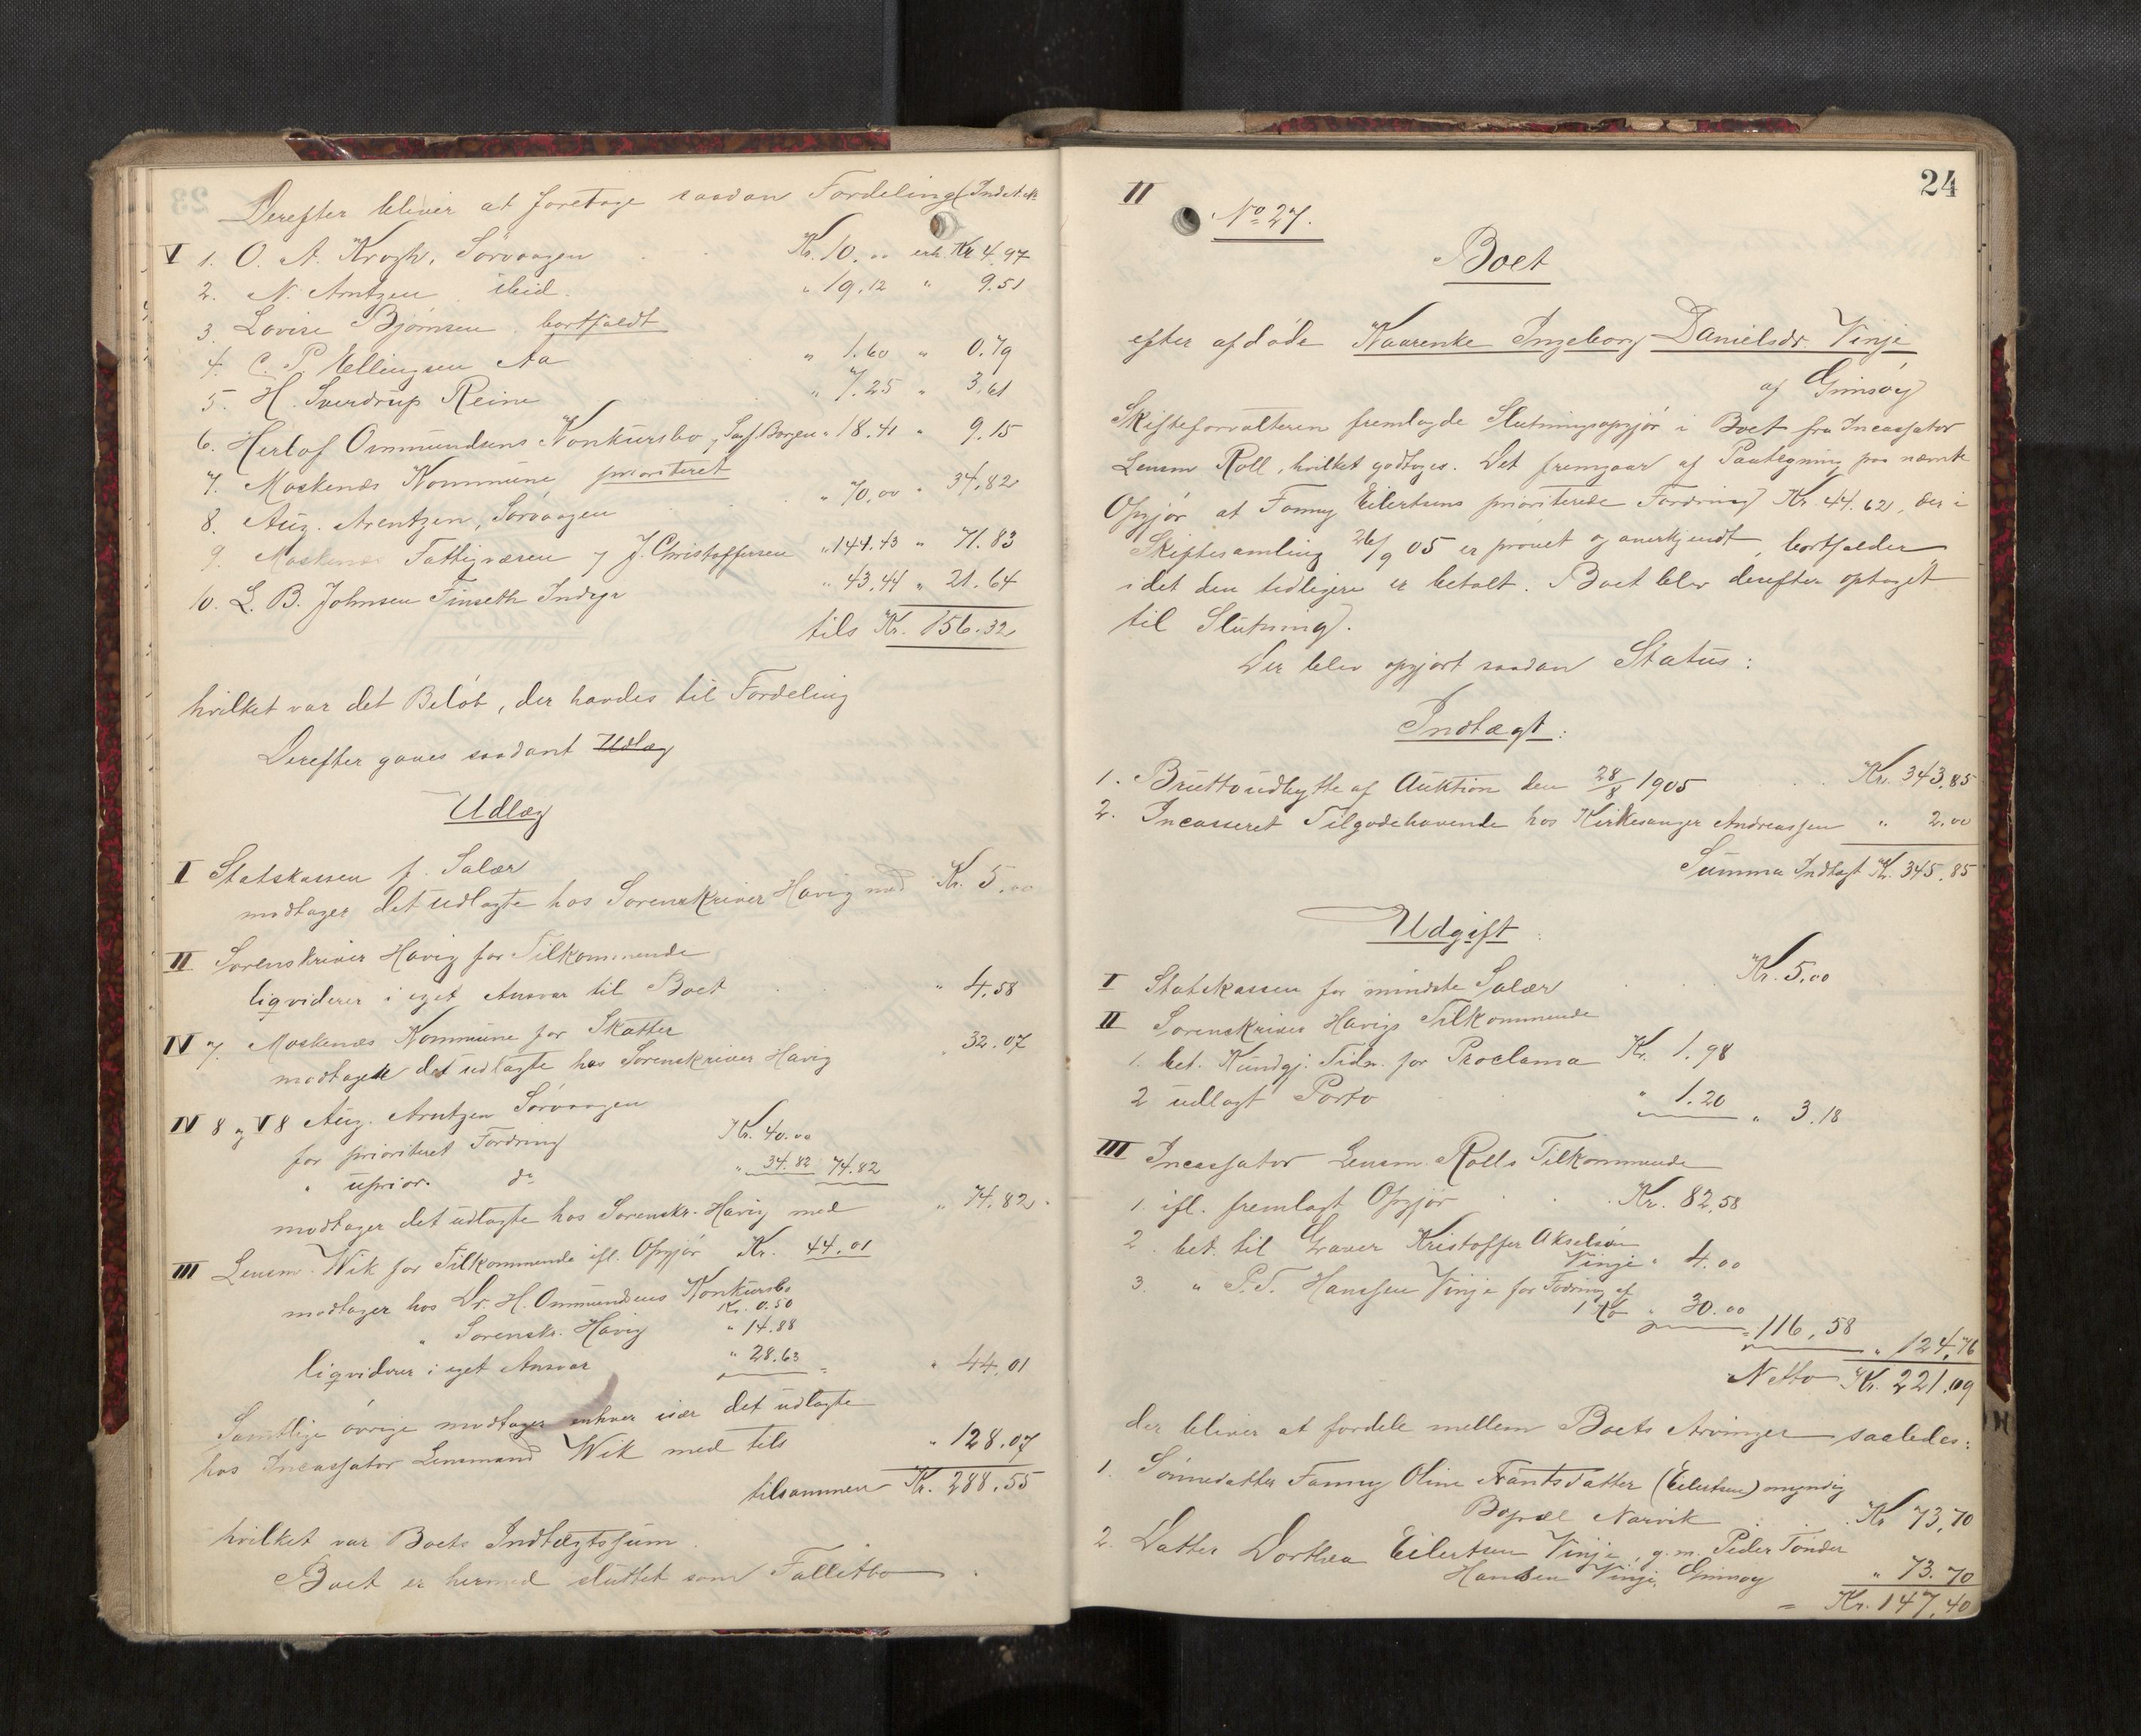 Derefter bliver at foretage saadan Fordeling
V 1. O. A. Krogh, Sørvaagen Kr. 10.00 erh. Kr 4.97
2. N. Arntzen ibid. " 19.12 " 9.51
3. Lovise Bjørnsen bortfaldt
4. C. P. Ellingsen Aa " 1.60 " 0.79
5. H. Sverdrup Reine " 7.25 " 3.61
6. Herlof Ommundsens Konkursbo, Borgen " 18.41 " 9.15
7. Moskenæs Kommune prioriteret
8. Aug. Arentzen, Sørvaagen " 70.00 " 34.82
9. Moskenæs Fattigvæsen J. Christoffersen " 144.43 " 71.83
10. L. B. Johnsen Finseth Indgr " 43.44 " 21.64
tils Kr. 156.32
hvilket var det Beløb, der havdes til Fordeling
Derefter gaves saadant Udlæg
Udlæg
I Statskassen f. Salær
modtager det udlagte hos Sorenskriver Havig med Kr. 5.00
II Sorenskriver Havig for Tilkommende
liqviderer i eget Ansvar til Boet " 4.58
IV 7. Moskenæs Kommune for Skatter
modtager det udlagte hos Sorenskriver Havig " 32.07
IV 8 og V 8 Aug. Arntzen Sørvaagen
for prioriteret Fordring Kr. 40.00
" uprior. do " 34.82 74.82
modtager det udlagte hos Sorenskr. Havig med " 74.82
III Lensm. Wik for Tilkommende ifl. Opgjør Kr. 44.01
modtager hos Dr. H. Ommundsens Konkursbo
Kr. 0.50
" Sorenskr. Havig " 14.88
liqviderer i eget Ansvar " 28.63 " 44.01
Samtlige øvrige modtager enhver især det udlagte
hos Incassator Lensmand Wik med tils " 128.07
tilsammen Kr. 288.55
hvilket var Boets Indtægtssum
Boet er hermed sluttet som Fallitbo.
24
II
No 27.
Boet
efter afdøde Kaarenke Ingeborg Danielsdr. Vinje
af Gimsøy
Skifteforvalteren fremlagde Slutningsopgjør i Boet fra Incassator
Lensm Roll, hvilket godtoges. Det fremgaar af Paategning paa nævnte
Opgjør at Fanny Eilertsens prioriterede Fordring Kr. 44.62, der i
Skiftesamling 26/9 05 er prøvet og anerkjendt, bortfalder
idet den tidligere er betalt. Boet blev derefter optaget
til Slutning.
Der blev opgjort saadan Status:
Indtægt:
1. Bruttoudbytte af Auktion den 28/8 1905 Kr. 343.85
2. Incasseret Tilgodehavende hos Kirkesanger Andreassen " 2.00
Summa Indtægt Kr. 345.85
Udgift
I Statskassen for mindste Salær Kr. 5.00
II Sorenskriver Havigs Tilkommende
1. bet. Kundgj. Tidn. for Proclama Kr. 1.98
2 udlagt Porto " 1.20 " 3.18
III Incassator Lensm. Rolls Tilkommende
1. ifl. fremlagt Opgjør Kr. 82.58
2. bet. til Graver Kristoffer Akselsøn
Vinje " 4.00
3. " P. T. Hanssen Vinje for Fodring af
1 Ko " 30.00
" 116,58 " 124.76
Netto Kr. 221.09
der bliver at fordele mellem Boets Arvinger saaledes:
1. Sønnedatter Fanny Oline Frantsdatter (Eilertsen) myndig
Bopæl Narvik Kr 73.70
2. Datter Dorthea Eilertsen Vinje, g. m. Peder Tønder
Hansen Vinje, Gimsøy " 73.70
= Kr. 147.40